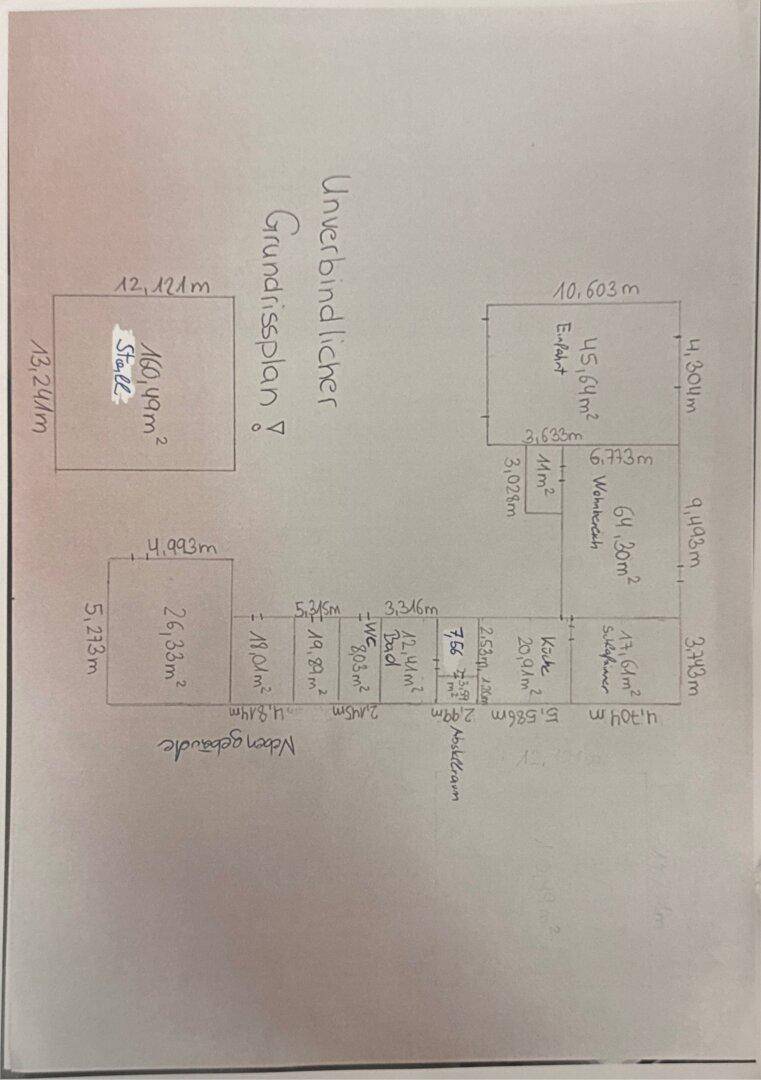 Unverbindlicher
Grundrissplan !
10,603m
4,304m
45,64m²
Einfahrt
3,633m
6,773m
11m²
3,028m
9,493m
64,30m²
Wohnbereich
3,743m
17,61m²
4,704m
Küche
20,91m²
5,586m
2,53m
7,56
3,99
m²
2,99m
Abstellraum
3,316m
12,41m²
Bad
WC
8,03m²
2,145m
5,315m
19,89m²
18,01m²
4,814m
4,993m
26,33m²
5,273m
Nebengebäude
12,121m
160,49m²
Stall
13,241m